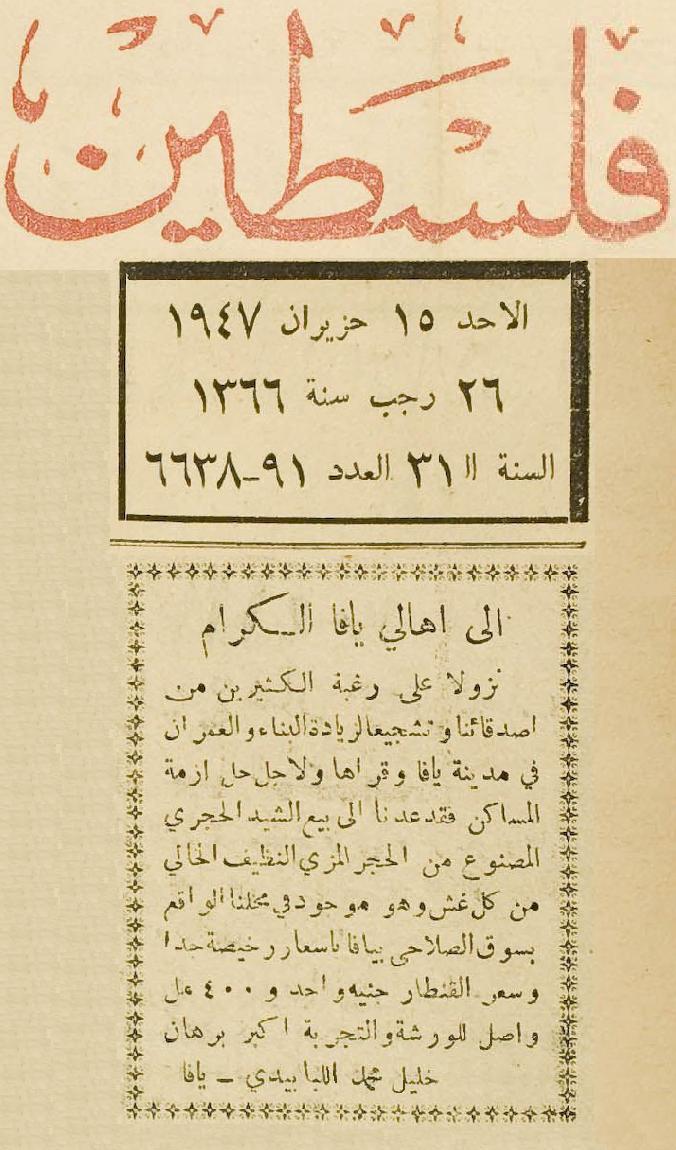 فلسطين
الاحد ١٥ حزيران ١٩٤٧
٢٦ رجب سنة ١٣٦٦
السنة الـ ٣١ العدد ٩١-٦٦٣٨
الى اهالي يافا الكرام
نزولا على رغبة الكثيرين من
اصدقائنا وتشجيعا لزيادة البناء والعمران
في مدينة يافا وقراها ولاجل حل ازمة
المساكن فقد عدنا الى بيع الشيد الحجري
المصنوع من الحجر المزي النظيف الخالي
من كل غش وهو موجود في محلنا الواقع
بسوق الصلاحي بيافا باسعار رخيصة جدا
وسعر القنطار جنيه واحد و ٤٠٠ مل
واصل للورشة والتجربة اكبر برهان
خليل محمد اللبابيدي - يافا